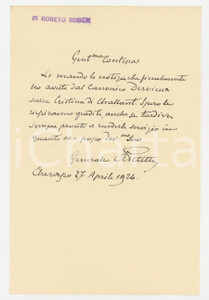 IN RORETO ROBUR
Gent.ma Contessa
Le mando le notizie che finalmente
ho avute dal Canonico Dervieux
sulla Cristina di Challant. Spero le
riusciranno gradite, anche se tardive
sempre pronto a renderle servizio in
quanto
Generale
Cherasco 27 Aprile 1924